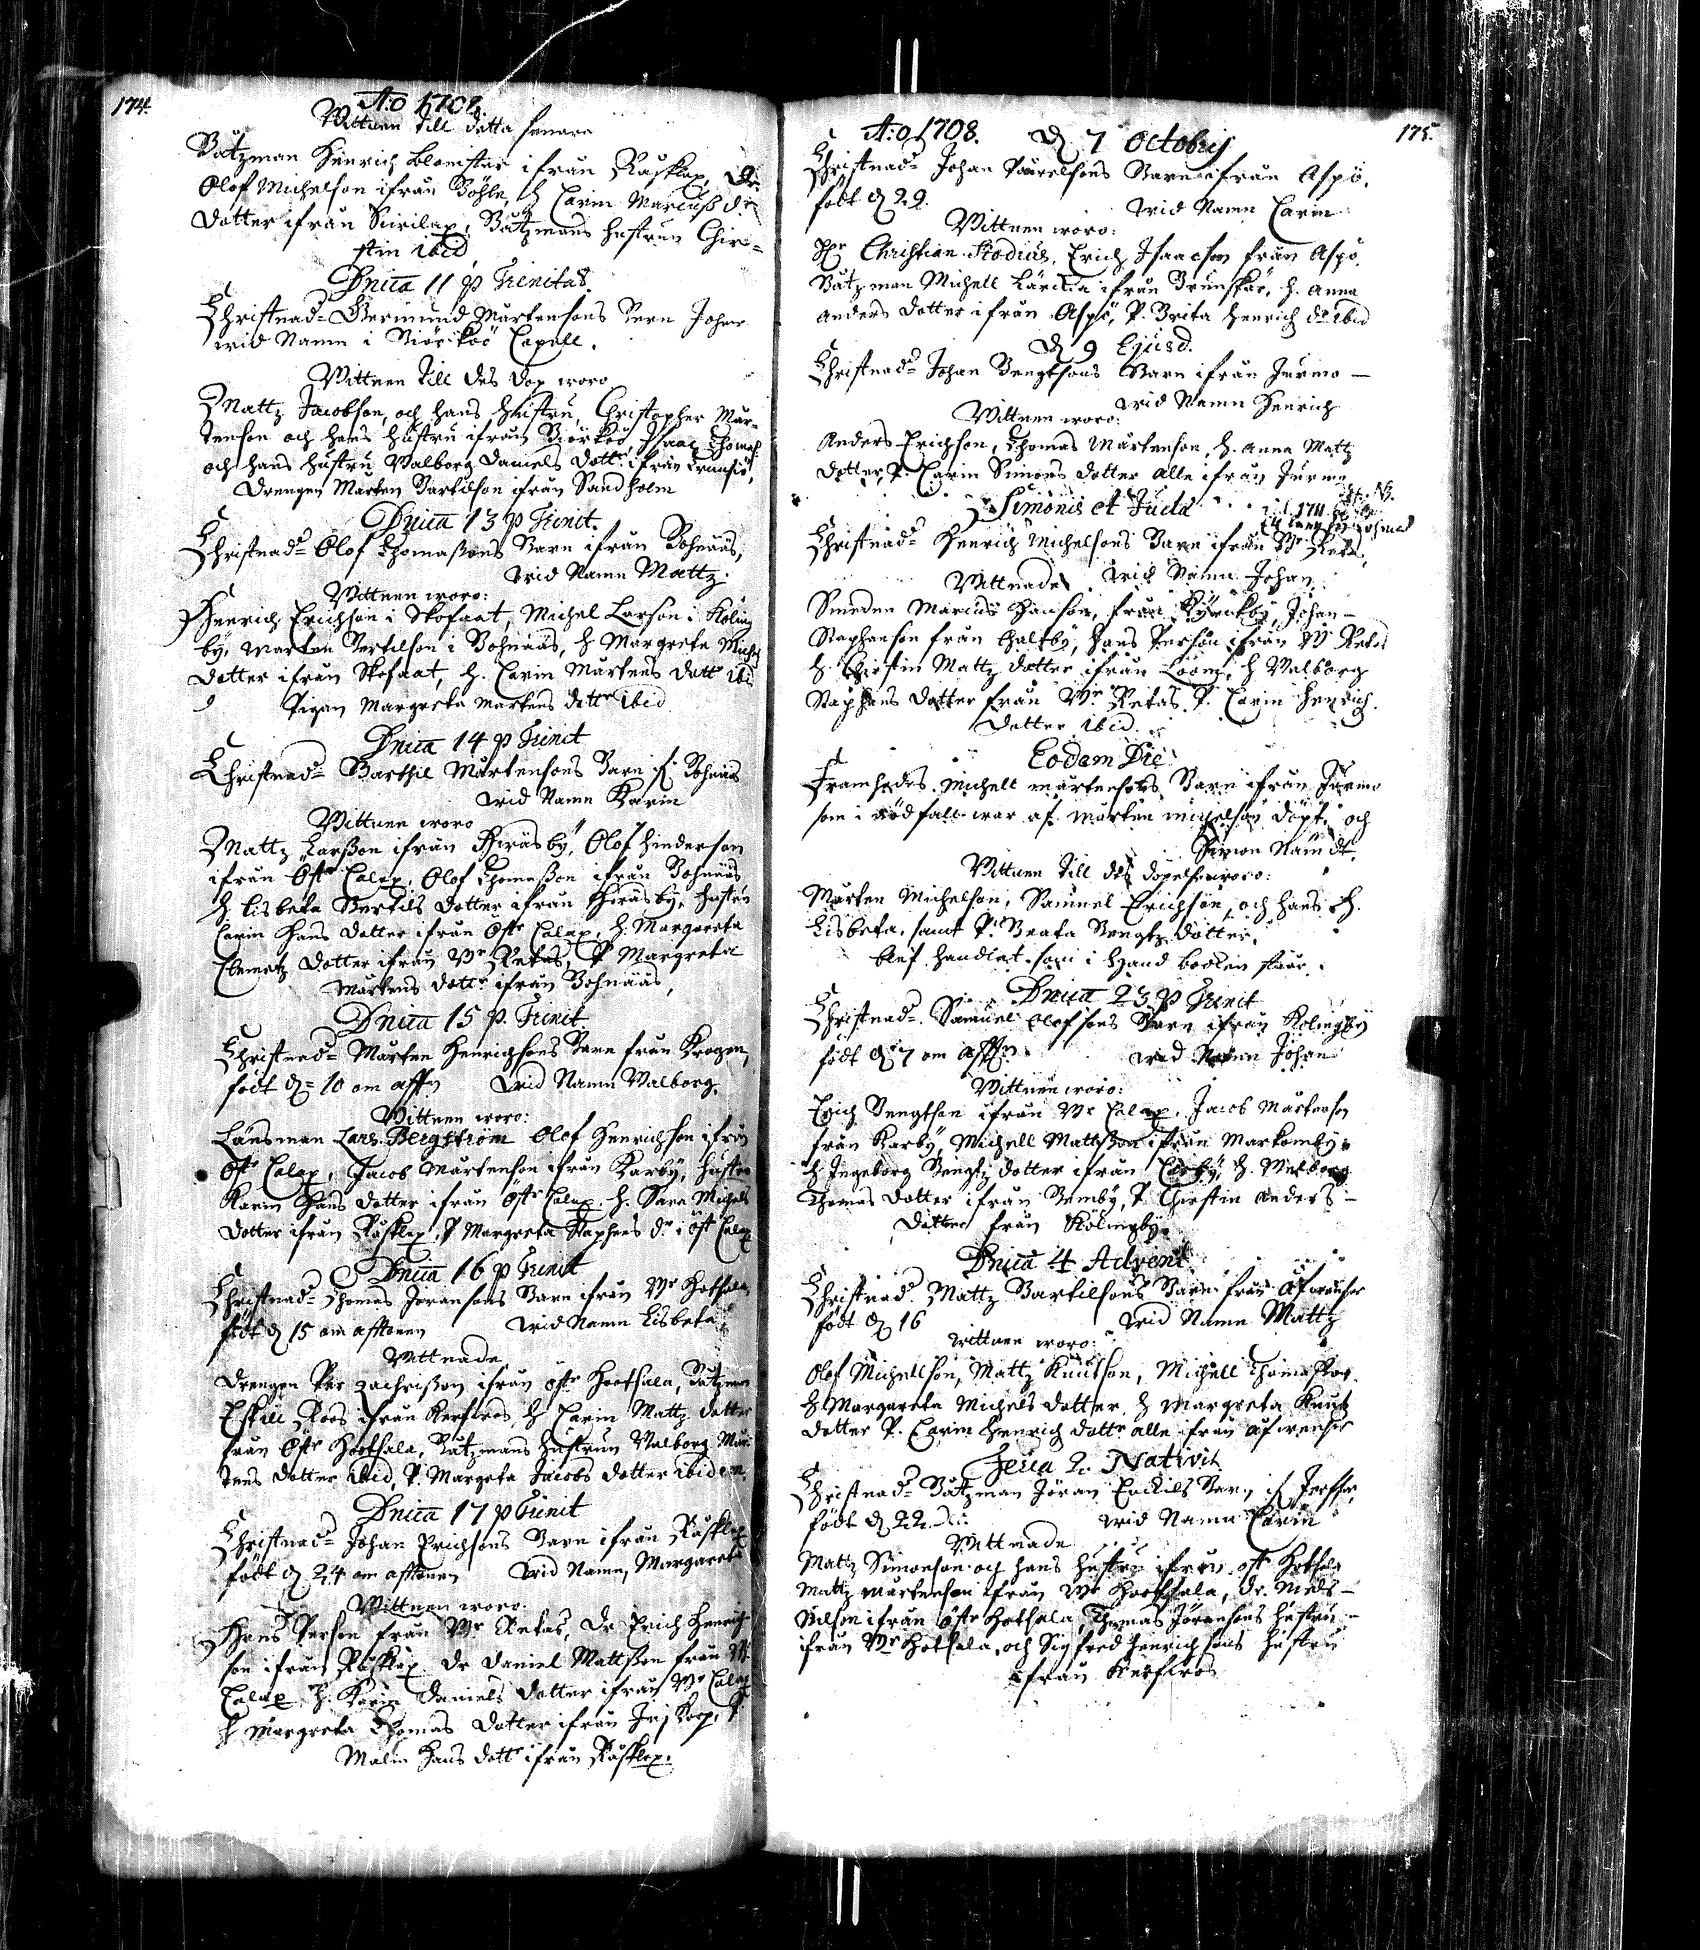 174.
A:o 1708
Wittnen till detta senare
Båtzman Henrich Blomster ifrån Råsklax, Dr:
Olof Michelson ifrån Böhle, H Carin Marcuß d:r
dotter ifrån Biurlax, Båtzmans hustrun Chir-
stin ibid
Dnica 11 p Trinitat.
Christnad= Germund Mårtensons Barn Johan
wid Namn i Biörkö Capell.
Wittnen till des dop woro
Mattz Jacobson, och hans hustru, Christopher Mår-
tenson och hans hustru ifrån Biörkö, Isaac Thomas
och hans hustru Walborg Daniels dott:r ifrån
Drengen Mårten Bartilson ifrån Sandholm
Dnica 13 p Trinit.
Christnad= Olof Thomaßons Barn ifrån Bohnääs,
wid Namn Mattz.
Wittnen woro:
Henrich Erichson i Skofaat, Michel Larson i Köling
by, Mårten Bertilson i Bohnääs, H Margreta Michels
dotter ifrån Skofaat, H. Carin Mårtens dott ibid
Pigan Margreta Mårtens dotter ibid
Dnica 14 p Trinit
Christnad= Barthil Mårtensons Barn if. Bohnääs
wid Namn Karin
Wittnen woro
Mattz Larßon ifrån Hiräsby, Olof Hinderson
ifrån Öst:r Calax, Olof Thomaßon ifrån Bohnääs
H Lisbeta Bertils dotter ifrån Hiräsby, hustru
Carin Hans dotter ifrån Öst:r Calax, H. Margareta
Clemetz dotter ifrån W:r Retas, P Margreta
Mårtens dott:r ifrån Bohnääs,
Dnica 15 p. Trinit
Christnad= Mårten Henrichsons Barn från Krogen,
födt d= 10 om afft:n wid Namn Walborg.
Wittnen woro:
Länsman Lars Bergström Olof Henrichson ifrån
Öst:r Calax, Jacob Mårtenson ifrån Karby, hustru
Karin Hans dotter ifrån Öst:r Calax. H. Sara Michels
dotter ifrån Råsklax, P Margreta Staphens d:r i Öst Calax
Dnica 16 p Trinit
Christnad= Thomas Joransons Barn ifrån W:r Hotsala
födt d 15 om afftonen wid Namn Lisbeta
Wittnade
Drengen Per Zachrißon ifrån Öst:r Hootsala, Båtzman
Eskill Roos ifrån Kerfsros H Carin Mattz dotter
från Öst:r Hootsala, Båtzmans hustrun Walborg Mår-
tens dotter ibid, P. Margeta Jacobs dotter ibidem.
Dnica 17 p Trinit
Christnad= Johan Erichsons Barn ifrån Råsklax
födt d 24 om afftonen wid Namn, Margareta
Wittnen woro:
Hans Person från W:r Retas, Dr Erich Henrich
son ifrån Råsklax. Dr Daniel Mattßon från W:r
Calax. H. Karin Daniels dotter ifrån W:r Calax
H Margreta Thomas dotter ifrån P
Malin Hans dott:r ifrån Råsklax.
175.
A:o 1708. d 7 Octobris
Christnad= Johan Påwelsons Barn ifrån Aspö,
födt d 29. wid Namn Carin
Wittnen woro:
H:r Christian Stodius, Erich Isaacson från Aspö,
Båtzman Michell ifrån Brunskär, H. Anna
Anders dotter ifrån Aspö, P. Brita Henrich d:r ibid
d 9 Ejusd.
Christnad= Johan Bengtsons Barn ifrån Jurmo —
wid Namn Henrich
Wittnen woro:
Anders Erichson, Thomas Mårtenson, H. Anna Mattz
dotter, P. Carin Simons dotter alle ifrån Jurmo
Simonis et Judæ
Christnad= Henrich Michelsons Barn ifrån W:r Retas,
Wittnade wid Namn Johan
Smeden Marcus Hanson, från Kyrckby, Johan —
Staphanson från Galtby, Hans Person ifrån W Retas
H Chirstin Mattz dotter ifrån Lööm, H Walborg
Staphans dotter från W:r Retas, P. Carin Henrich
dotter ibid.
Eodem Die
Framhades Michell Mårtensons Barn ifrån Jurmo
som i nödfall war af Mårten Michelson döpt, och
Simon Nämdt.
Wittnen till des döpelse woro:
Mårten Michelson, Samuel Erichson, och hans H.
Lisbeta, samt P. Beata Bengtz dotter,
blef handlat som i Hand boken står.
Dnica 23 p Trinit
Christnad= Samuel Olofsons Barn ifrån Kölingby
födt d 7 om afft:n wid Namn Johan
Wittnen woro:
Erich Bengtson ifrån W:r Calax, Jacob Mårtenson
från Karby, Michell Mattßon ifrån Markomby
H Ingeborg Bengtz dotter ifrån Carby, H. Walborg
Thomas dotter ifrån Semby, P. Chirstin Anders —
dotter från Kölingby.
Dnica 4 Advent
Christnad Mattz Bartilsons Barn från
födt d 16 wid Namn Mattz
Wittnen woro:
Olof Michellson, Mattz Knutson, Michell Thomaßon
H Margareta Michels dotter H Margreta Knutz
dotter P. Carin Henrich dott:r alle ifrån
Feria 2. Nativit
Christnad= Båtzman Jöran Enckils Barn if.
födt d 22 wid Namn Carin
Wittnade
Mattz Simonson och hans hustru ifrån öst:r Hotsala
Mattz Mårtenson ifrån W:r Hootsala, Dr. Niels —
Nilson ifrån Östr Hotsala, Thomas Jöransons hustru —
ifrån W:r Hotsala, och Sigfred Henrichsons hustru
ifrån Kerfsros